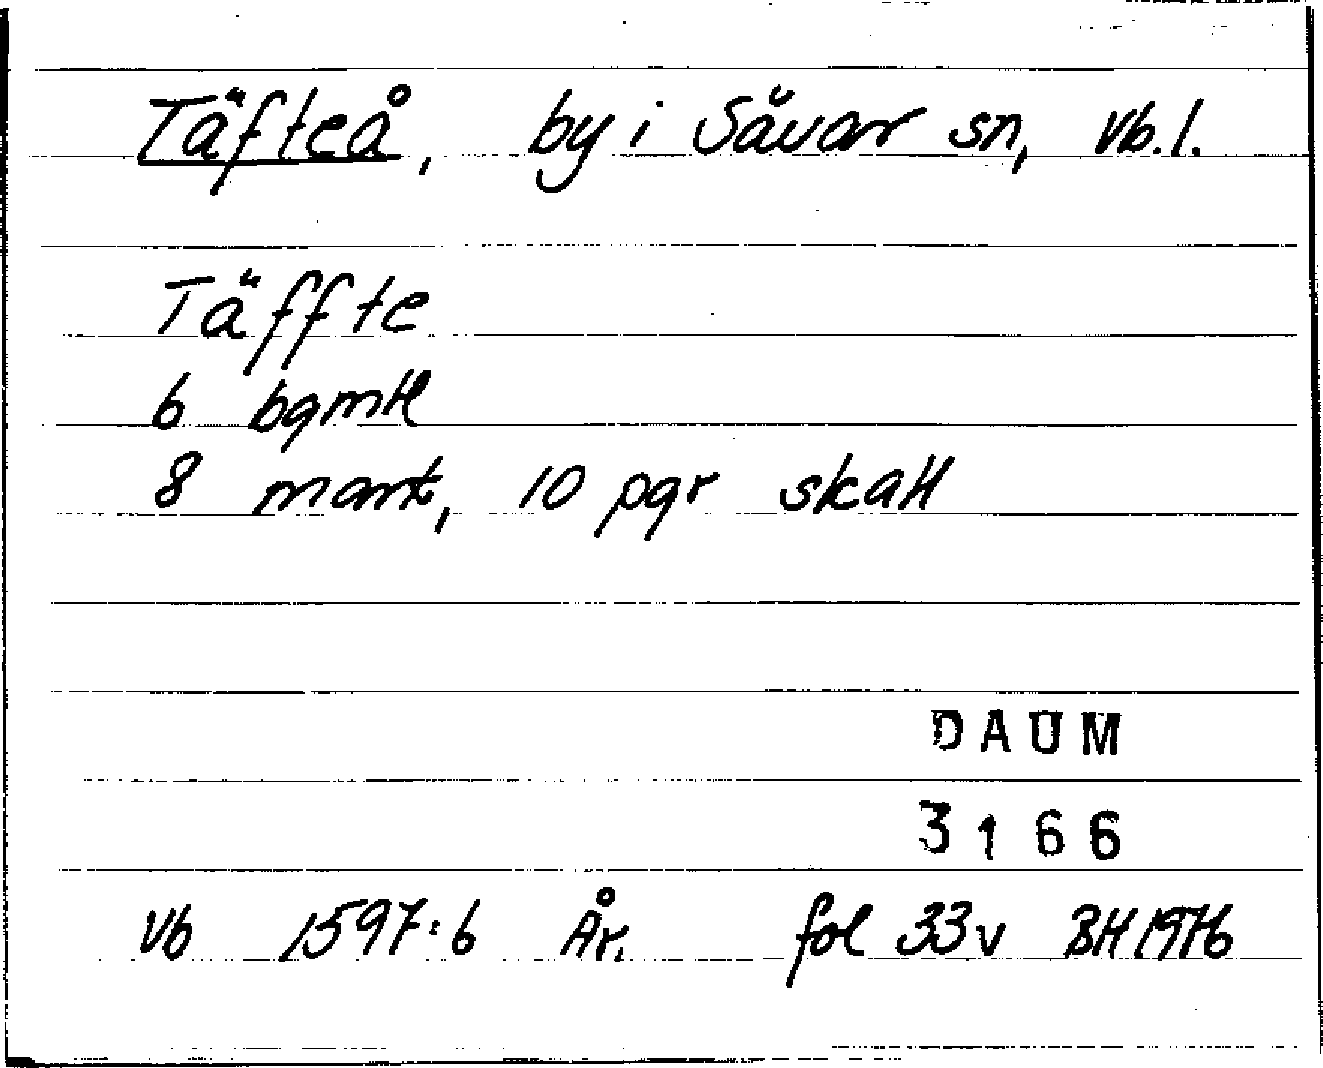 Täfteå, by i Sävar sn, Vb.l.
Täffte
6 bgmtl
8 mark, 10 pgr skatt
DAUM
3166
Vb 1597:6 År. fol 33v BH 1976